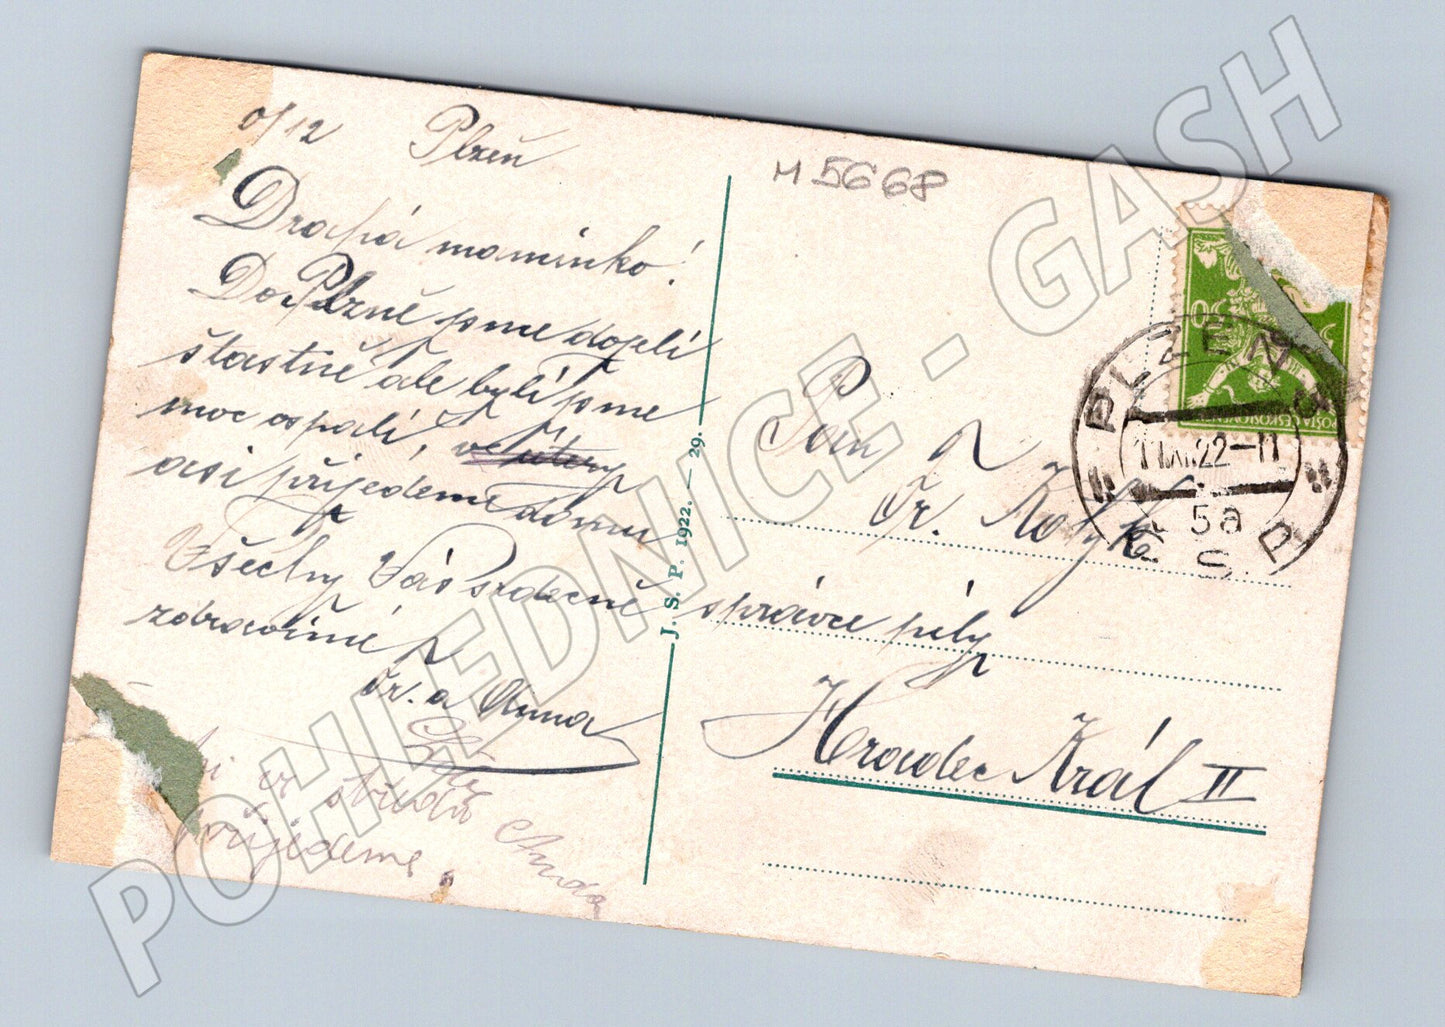 Plzeň
Drahá maminko!
Do Plzně jsme dojeli
šťastně ale byli jsme
moc ospalí, v úterý
asi přijedeme domu
Všechny Vás srdečně
zdravíme
Fr. a Anna
v středu
přijedeme
M 5668
J. S. P. 1922. — 29.
P
Pan
Fr. Kotyk
správce pily
Hradec Král II
PLZEŇ
22-11
5a
Č.S.P.
POŠTA ČESKOSLOVENSKÁ
POHLEDNICE - GASH